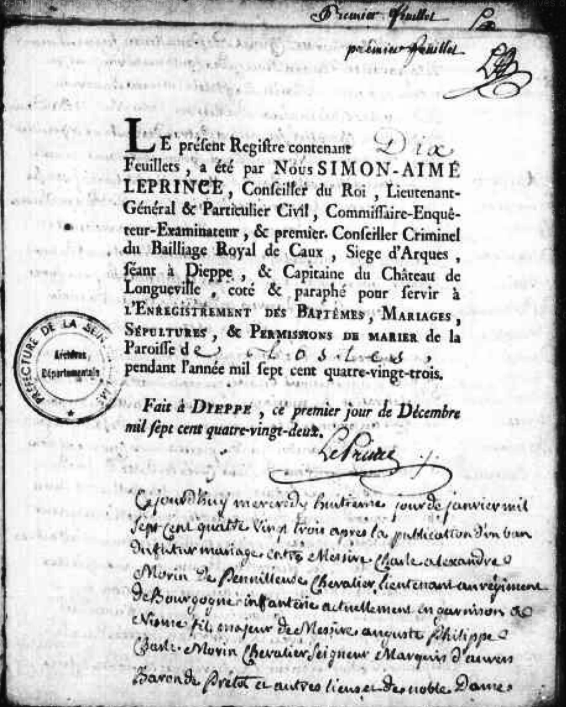 Premier feuillet
premier feuillet
LE présent Registre contenant Dix
Feuillets, a été par NOUS SIMON-AIMÉ
LEPRINCE, Conseiller du Roi, Lieutenant-
Général & Particulier Civil, Commissaire-Enquê-
teur-Examinateur, & premier Conseiller Criminel
du Bailliage Royal de Caux, Siege d'Arques,
séant à Dieppe, & Capitaine du Château de
Longueville, coté & paraphé pour servir à
l'ENREGISTREMENT DES BAPTÊMES, MARIAGES,
SÉPULTURES, & PERMISSIONS DE MARIER de la
Paroisse de
pendant l'année mil sept cent quatre-vingt-trois.
PRÉFECTURE DE LA SEINE
Archives
Départementales
Fait à DIEPPE, ce premier jour de Décembre
mil sept cent quatre-vingt-deux.
LePrince
Cejourdhuy mercredy huitieme jour de janvier mil
sept cent quatre vingt trois apres la publication d'un ban
du futur mariage entre Messire Charle alexandre
Morin De Chevalier, lieutenant au régiment
de Bourgogne infanterie actuellement en garnison a
fils majeur de Messire auguste Philippe
Charle Morin Chevalier, Seigneur Marquis d'
Baron de Prétot et autres lieux et de noble Dame